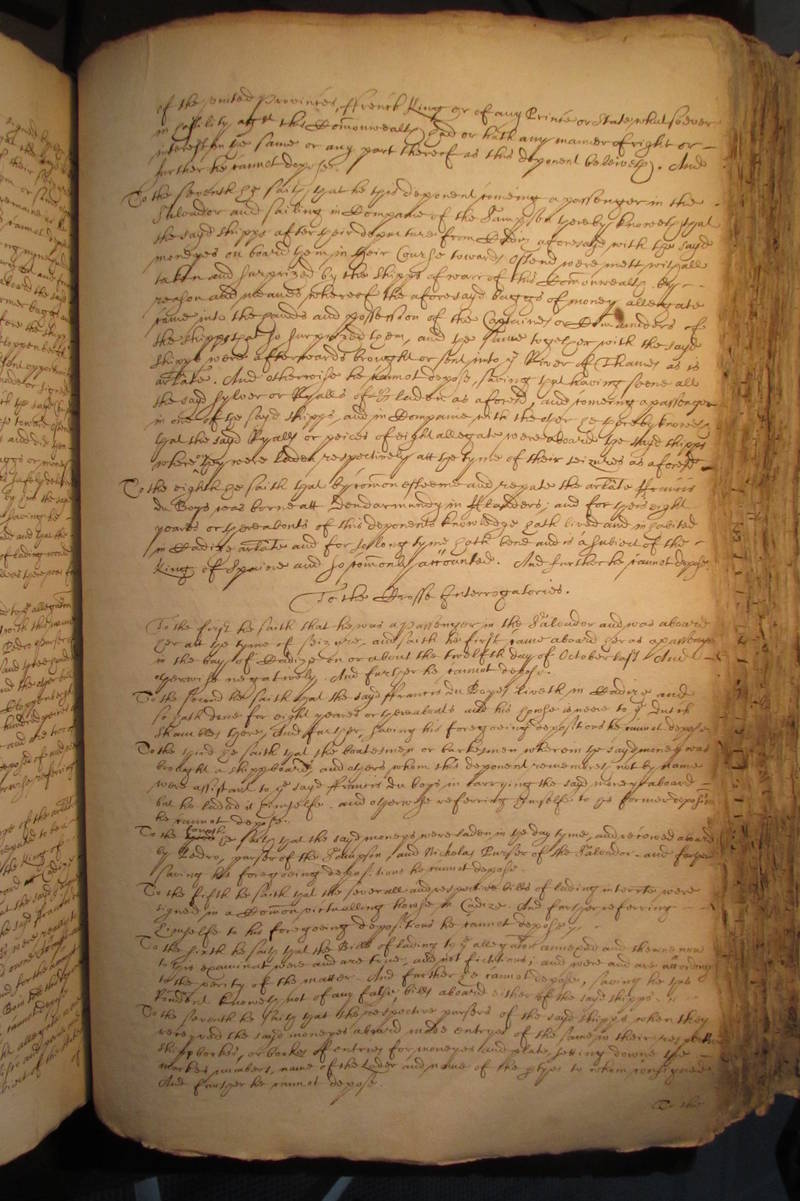 of the united Provinces, ffrench King or of any Prince or State whatsoever
in hostility with this Comonwealth had or hath any manner of right or
interest in the same or any part thereof as this deponent beleiveth. And
further he cannot depose.
To the seventh hee saith that he this deponent comeing a passenger in the
Salvador and sailing in Companie of the Sampson thereby knoweth that
the sayd shipps after their departure from Cadiz aforesayd with the sayd
moneyes on board them in their Course towards Ostend were mett withall
taken and surprized by the shipps of warr of this Comonwealth by
reason and meanes whereof the aforesayd baggs of money allegate
came into the hands and possession of the Captaines or Comanders of
the shipps that so surprized them, and the same together with the sayd
shipps were afterwards brought or sent into ye River of Thames as is
arlate. And otherwise he cannot depose, saving that having seene all
the said sylver or Ryalls of laden as aforesd, and comeing a passenger
in one of the sayd shipps, and in Companie with the other he thereby knoweth
that the said Ryalls or peices of eight allegate were aboard the sayd shipps
where they were laden respectively att the tyme of their seizures as aforesd
To the eighth he saith that by comon esteeme and repute the arlate ffrancis
du Boys was borne att Dendarmond in fflanders, and for theis eight
yeares or thereabouts of this deponents knowledge hath lived and inhabited
in Cadize arlate and for so long tyme hath bene and is a subject of the
King of Spaine and so comonly accounted. And further he cannot depose.
To the Crosse Interrogatories.
To the first he saith that he was a passenger in the Salvador and was aboard
her att the tyme of seizure, and saith he first came aboard her as a passenger
in the bay of Cadiz on or about the twelfth day of October last And
otherwise negatively. And further he cannot depose.
To the second he saith that the sayd ffrancis du Boyes liveth in Cadize and
so hath done for eight yeares or thereabouts and his house is neere to ye Dutch
shambles there, And further, saving his foregoeing depositions he cannot depose
To the third he saith that the boatesmen or barkesmen wherein the sayd money was
brought a shippboard, and others whom this deponent remembers not by name
were assistant to ye sayd ffrancis du boys in carrying the said money aboard
but he laded it himselfe. and otherwise referring himselfe to his former deposition
he cannot depose.
To the fourth he saith that the sayd moneys were laden in the day tyme, and received aboard
by Pedro, purser of the Sampson, and Nicholas Purser of the Salvador and further
saving his foregoeing depositions he cannot depose.
To the fifth he saith that the severall and respective bills of lading interrate were
signed in a Comon victualling house in Cadize. And further referring
himselfe to his foregoeing depositions he cannot depose.
To the sixth he saith that the Bills of lading to ye allegation annexed and shewne now
to this examinate were and are true, and not fictitious, and were and are according
to the verity of the matter. And further he cannot depose, saving he this
Rendent knoweth not of any false bills aboard either of the sayd shipps.
To the seventh he saith that the respective pursers of the sayd shipps when they
received the said moneyes aboard made entryes of the same in their respective
shipp bookes, or bookes of entries for moneyes and plate, setting downe the
markes numbers, name of the Lader and name of the ptyes to whom consigned
And further he cannot depose.
To the